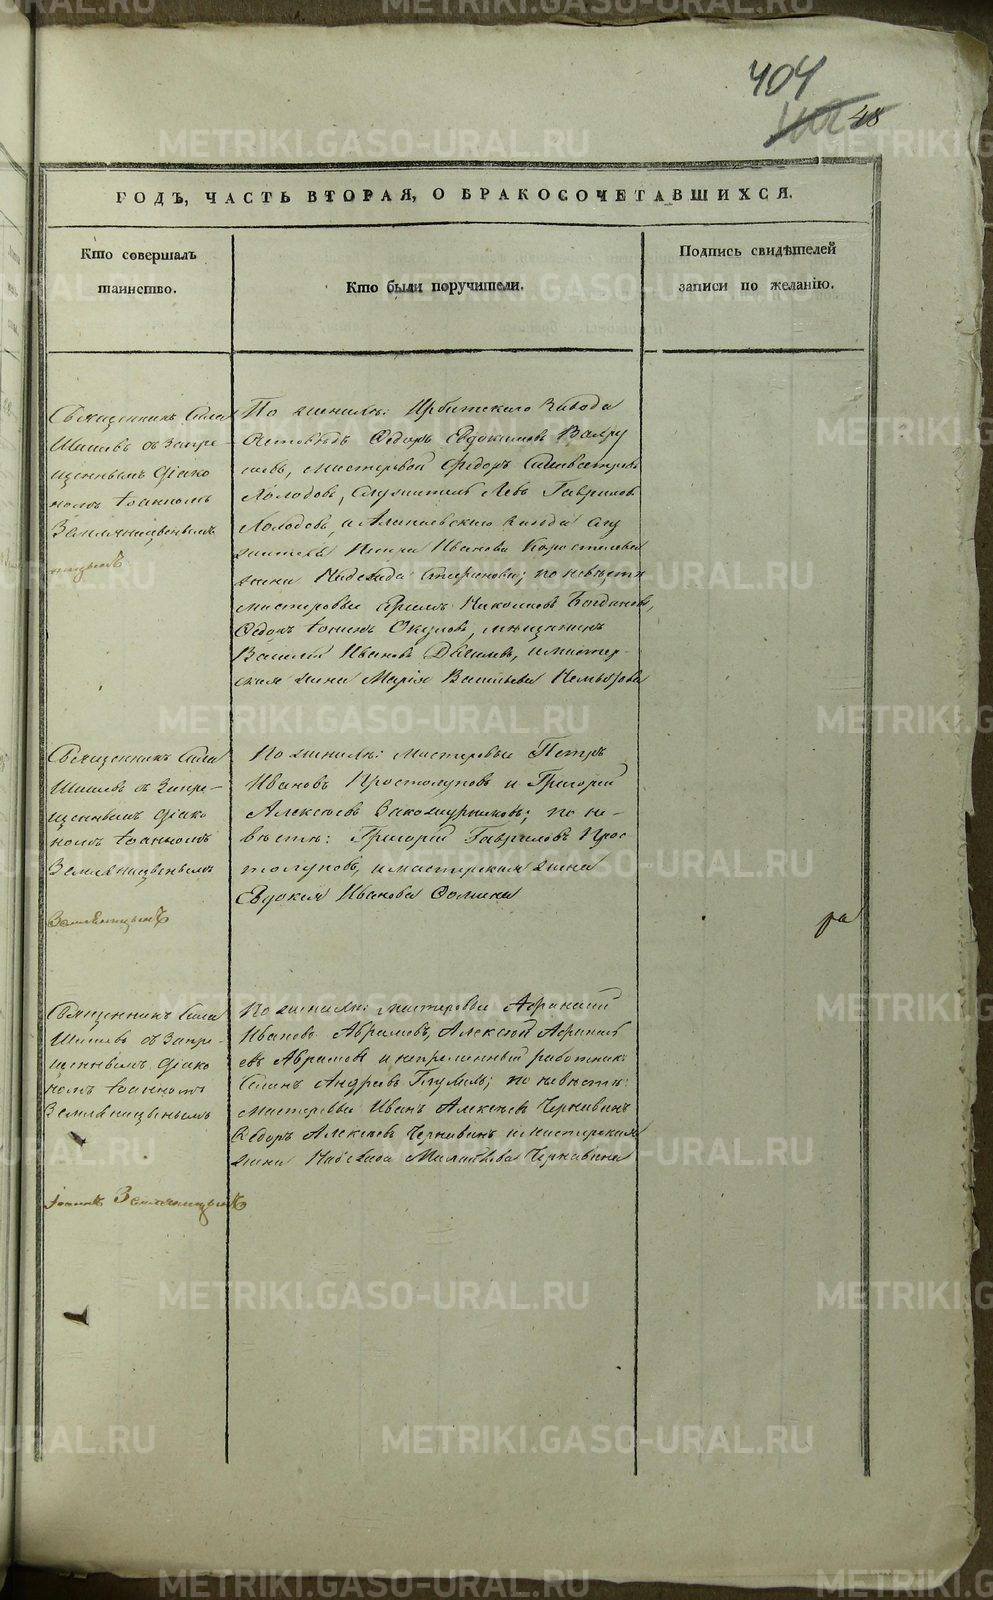 404
48
ГОДЪ, ЧАСТЬ ВТОРАЯ, О БРАКОСОЧЕТАВШИХСЯ.
Кто совершалъ
таинство.
Кто были поручители.
Подпись свидѣтелей
записи по желанію.
Священникъ Сила
Шишевъ съ Запре-
щеннымъ діако
номъ Іоанномъ
Земляницынымъ
По женихѣ: Ирбитскаго Завода
Федоръ Евдокимовъ
мастеровой Федоръ Сильвестровъ
Холодовъ, Служитель Левъ Гавриловъ
Холодовъ, и Алапаевскаго завода слу
жителя Ивановa Коростелева
жена Надежда Стефанова; по невѣсте
мастеровые Николаевъ Богдановъ,
Федоръ Іонинъ Окуловъ, мѣщанинъ
Василій Ивановъ и мастер-
ская жена Марія Васильева
Священникъ Сила
Шишевъ съ Запре-
щеннымъ діако
номъ Іоанномъ
Земляницынымъ
Земляницынъ
По женихѣ: мастеровые Петръ
Ивановъ Простолуповъ и Григорій
Алексѣевъ Закожурниковъ; по не-
вѣстѣ: Григорій Гавриловъ Прос
толуповъ, и мастерская жена
Евдокія Иванова Фомина
ра
Священникъ Сила
Шишевъ съ Запре-
щеннымъ діако
номъ Іоанномъ
Земляницынымъ
Іоаннъ Земляницынъ
По женихѣ: мастеровые Афанасій
Ивановъ Абрамовъ, Алексѣй Афанась
евъ Абрамовъ и непременный работникъ
Андреевъ; по невѣстѣ:
мастеровые Иванъ Алексѣевъ Чернавинъ
Федоръ Алексѣевъ Чернавинъ и мастерская
жена Надежда Чернавина
METRIKI.GASO-URAL.RU